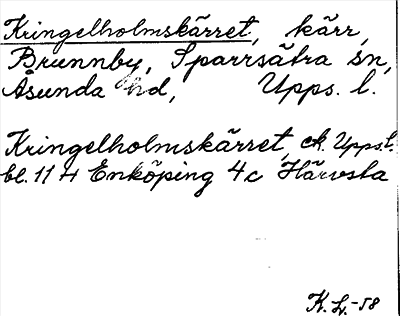 Kringelholmskärret, kärr,
Brunnby, Sparrsätra sn,
Åsunda hd, Upps. l.
Kringelholmskärret, ek. Upps. l.
bl. 11 H Enköping 4c Härvsta
K. L. -58